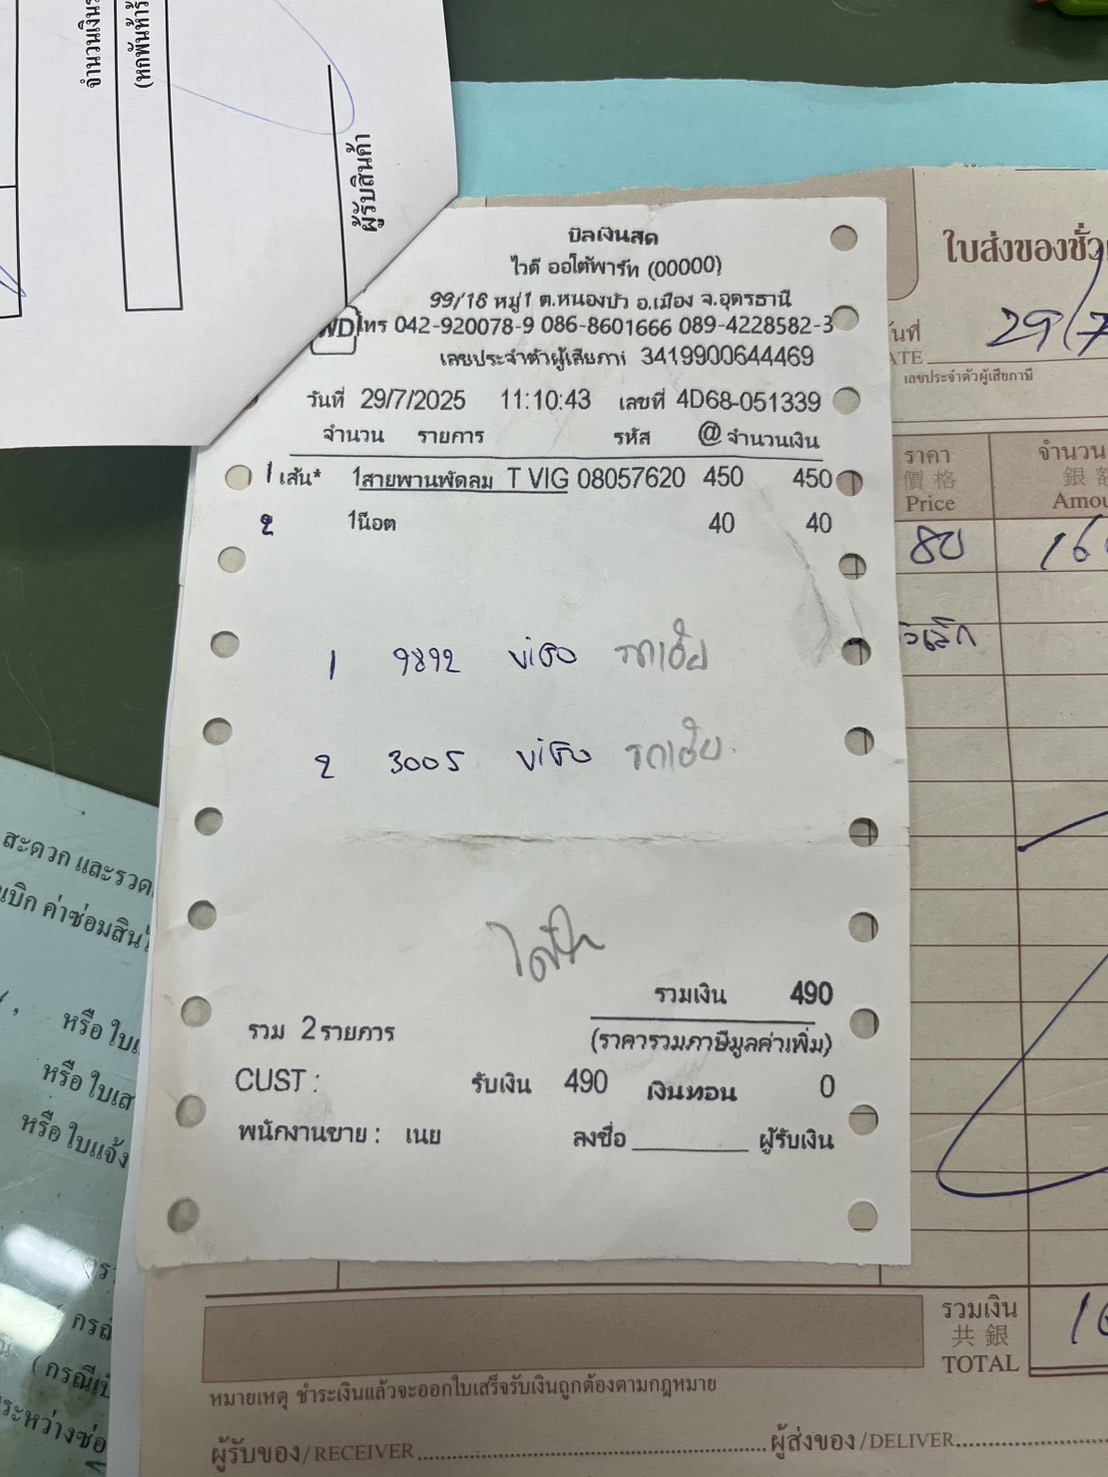 จำนวนเงิน
(หกพันห้าร้
ผู้รับสินค้า
บิลเงินสด
ไวดี ออโต้พาร์ท (00000)
99/18 หมู่1 ต.หนองบัว อ.เมือง จ.อุดรธานี
WD โทร 042-920078-9 086-8601666 089-4228582-3
เลขประจำตัวผู้เสียภาษี 3419900644469
วันที่ 29/7/2025 11:10:43 เลขที่ 4D68-051339
จำนวน รายการ รหัส @ จำนวนเงิน
1 เส้น* 1สายพานพัดลม T VIG 08057620 450 450
2 1น๊อต 40 40
1 9892 บิ๊ก
2 3005
รวมเงิน 490
รวม 2รายการ (ราคารวมภาษีมูลค่าเพิ่ม)
CUST : รับเงิน 490 เงินทอน 0
พนักงานขาย : เนย ลงชื่อ ผู้รับเงิน
ใบส่งของชั่ว
29/7
วันที่
DATE
เลขประจำตัวผู้เสียภาษี
ราคา จำนวน
價 格 銀
Price Amou
80 16
รวมเงิน
共 銀
TOTAL
หมายเหตุ ชำระเงินแล้วจะออกใบเสร็จรับเงินถูกต้องตามกฎหมาย
ผู้รับของ/RECEIVER ผู้ส่งของ/DELIVER
สะดวก และรวด
เบิก ค่าซ่อมสิน
หรือ ใบ
หรือ ใบเส
หรือ ใบแจ้ง
(กรณี
ระหว่างซ่อ